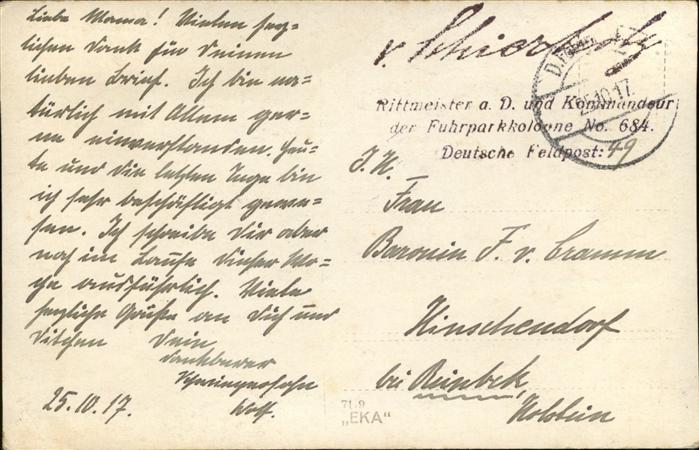 Liebe Mama! Vielen herz-
lichen Dank für Deinen
lieben Brief. Ich bin na-
türlich mit Allem ger-
ne einverstanden. Heu-
te und die letzten Tage bin
ich sehr beschäftigt gewe-
sen. Ich schreibe Dir aber
noch im Laufe dieser Wo-
che ausführlich. Viele
herzliche Grüße an Dich und
Dein
dankbarer
Schwiegersohn
Wolf.
25.10.17.
v. Schierholz
Rittmeister a. D. und Kommandeur
der Fuhrparkkolonne No. 684.
Deutsche Feldpost: 49
25.10.17.
Frau
Baronin F. v. Cramm
Hinschendorf
bei Reinbek,
Holstein
71.9
„EKA"